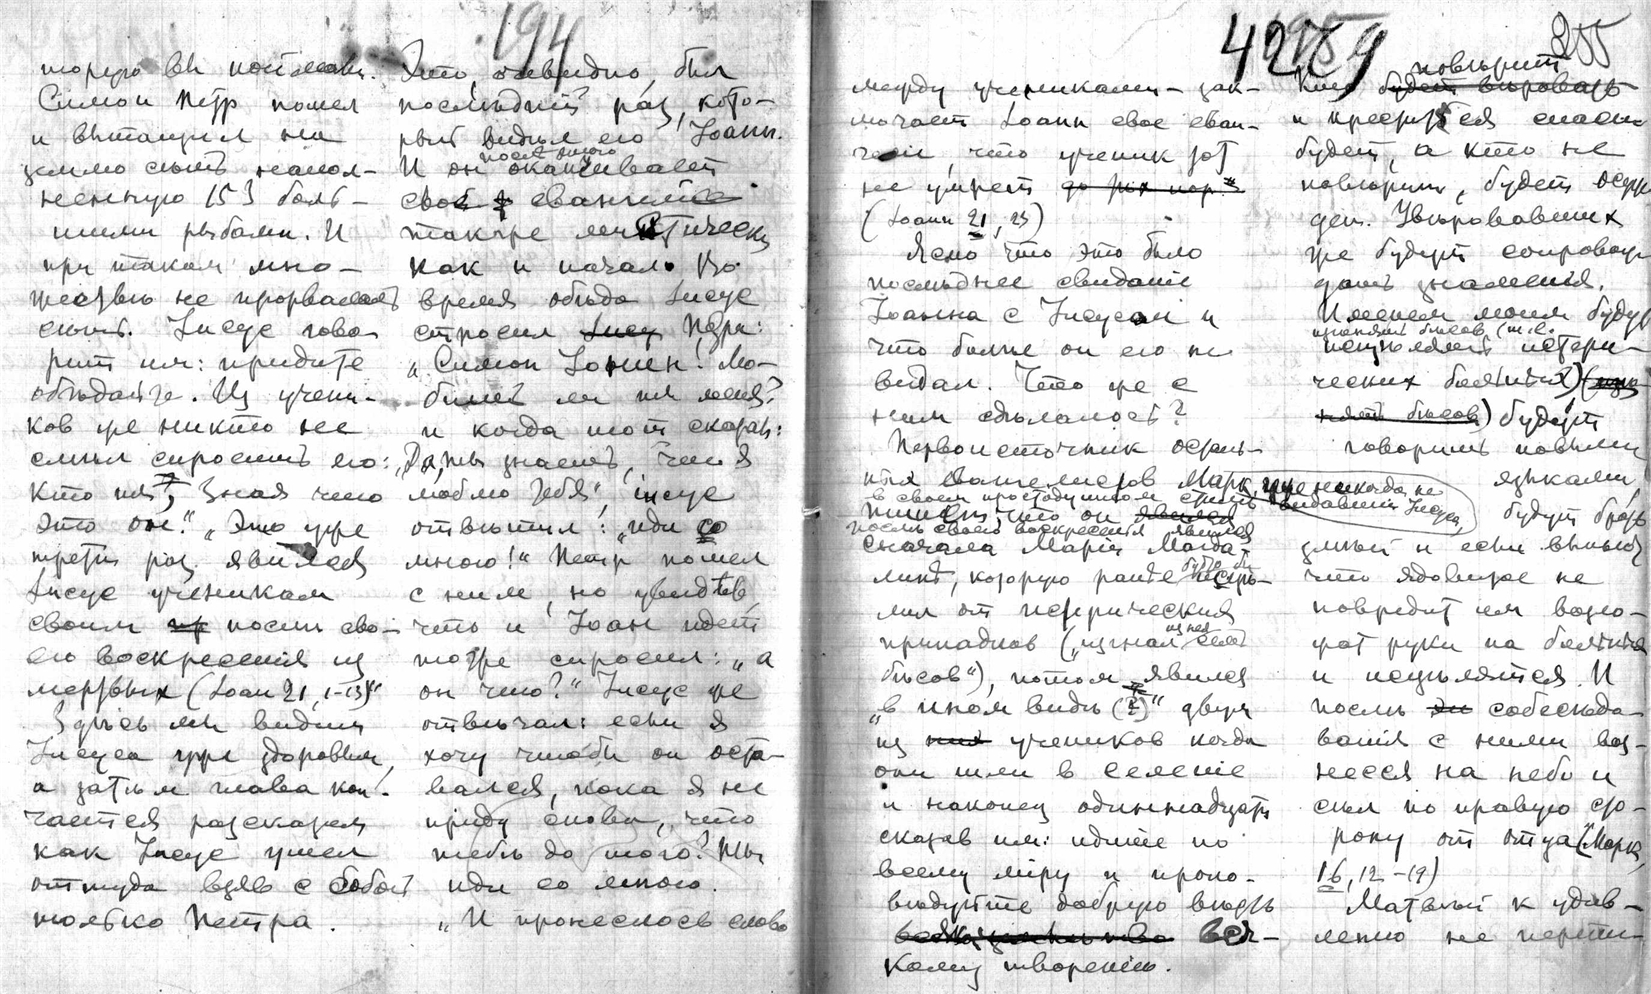 194
торую вы поймали.
Симон Петр пошел
и вытащил на
землю сеть напол-
ненную 153 боль-
шими рыбами. И
при таком мно-
жестве не прорвалась
сеть. Іисус гово-
рит им: придите
обѣдайте. Из учени-
ков же никто не
смѣл спросить его:
кто ты, зная что
это он." „Это уже
третій раз явился
Іисус ученикам
своим по́слѣ сво-
его воскресенія из
мертвых (Іоан 21, 1-13)"
Здѣсь мы видим
Іисуса уже здоровым,
а затѣм глава кон-
чается разсказом
как Іисус ушел
оттуда взяв с собой
только Петра.
Это, очевидно, был
последній раз, кото-
рый видѣл его Іоанн.
послѣ этого
И он оканчивает
свое евангеліе
также мистически
как и начал. Во
время обѣда Іисус
спросил Іисус Петра:
„Симон Іонин! Лю-
бишь ли ты меня?
и когда тот сказал:
„Да, ты знаешь, что я
люблю тебя" Іисус
отвѣтил: „иди со
мною!" Петр пошел
с ним, но увидѣв,
что и Іоан идет
тоже спросил: „а
он что?" Іисус же
отвѣчал: если я
хочу чтобы он оста-
вался, пока я не
приду снова, что
тебѣ до того? Ты
иди со мною.
„И пронеслось слово
42 189
255
между учениками- зак-
лючает Іоанн свое еван-
геліе, что ученик тот
не умрет
(Іоанн 21, 23)
Ясно что это было
послѣднее свиданіе
Іоанна с Іисусом и
что больше он его не
видал. Что же с
ним сдѣлалось?
Первоисточник осталь-
ных евангелистов Марк, уже никогда не
видавшій Іисуса,
в своем простодушном
пишет, что он явился
послѣ своего воскресенія явился
сначала Маріи Магда-
линѣ, которую ранѣе будто бы исцѣ-
лил от истерических
припадков („изгнал из нея семь
бѣсов"), потом явился
„в ином видѣ (?)" двум
из них учеников когда
они шли в селеніе
и наконец одиннадцати
сказав им: идите по
всему міру и пропо-
вѣдуйте добрую вѣсть
вся-
кому творенію.
повѣрит
Кто будет вѣровать
и крестится спасен
будет, а кто не
повѣрит, будет осуж-
ден. Увѣровавших
же будут сопровож-
дать знаменія.
Именем моим будут
изгонять бѣсов (т.е.
исцѣлять истери-
ческих больных) (изго-
нять бѣсов) будут
говорить новыми
языками,
будут брать
змѣй и если выпьют
что ядовитое не
повредит им возло-
жат руки на больных
и исцѣлятся. И
послѣ собесѣдо-
ванія с ними воз-
несся на небо и
сѣл по правую сто-
рону от отца" (Марк,
16, 12-19)
Матвѣй к удив-
ленію не